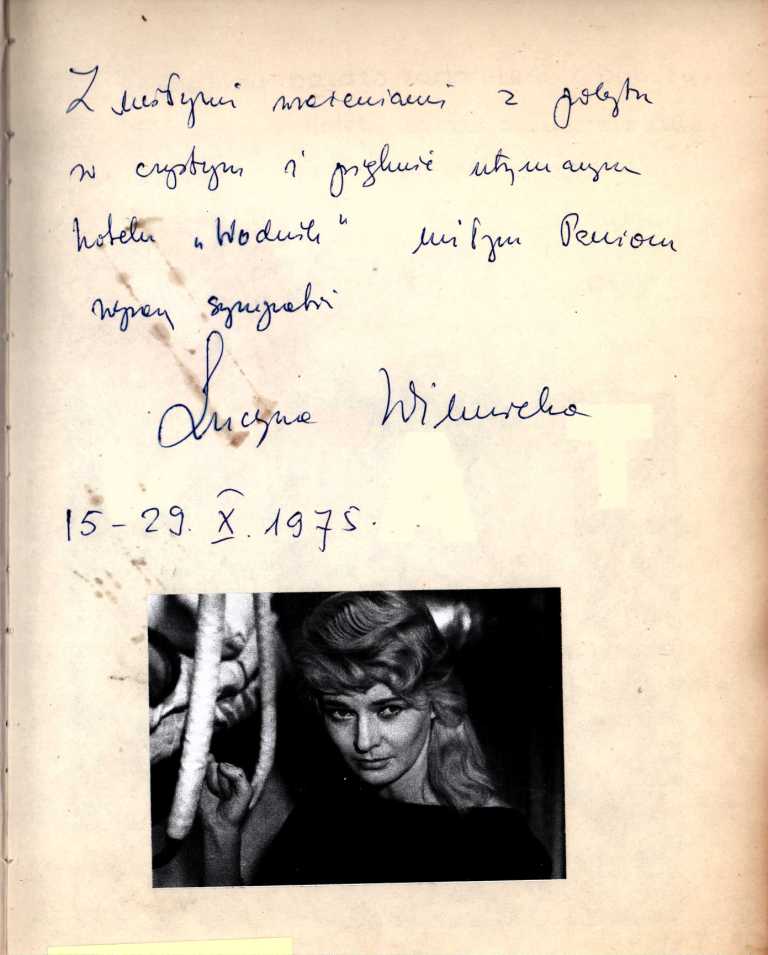 Z miłymi wrażeniami z pobytu
w czystym i pięknie utrzymanym
hotelu „Wodnik" miłym Paniom
wyrazy sympatii
Lucyna Winnicka
15-29. X. 1975.